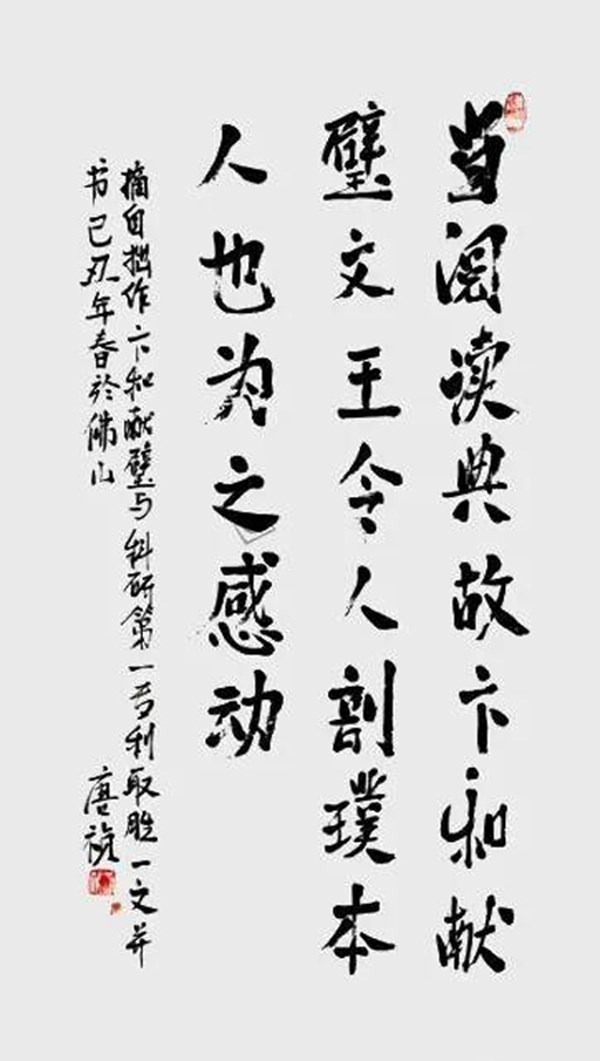 当阅读典故卞和献
璧文王令人剖璞本
人也为之感动
摘自拙作卞和献璧与科研第一专利取胜一文并
书己丑年春於佛山
唐祯